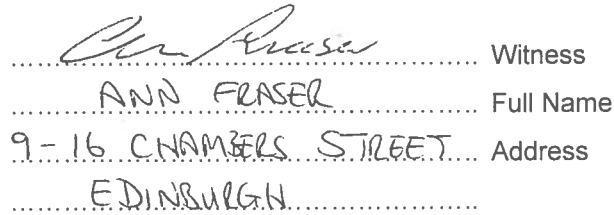 Ann Fraser Witness
ANN FRASER Full Name
9-16 CHAMBERS STREET Address
EDINBURGH